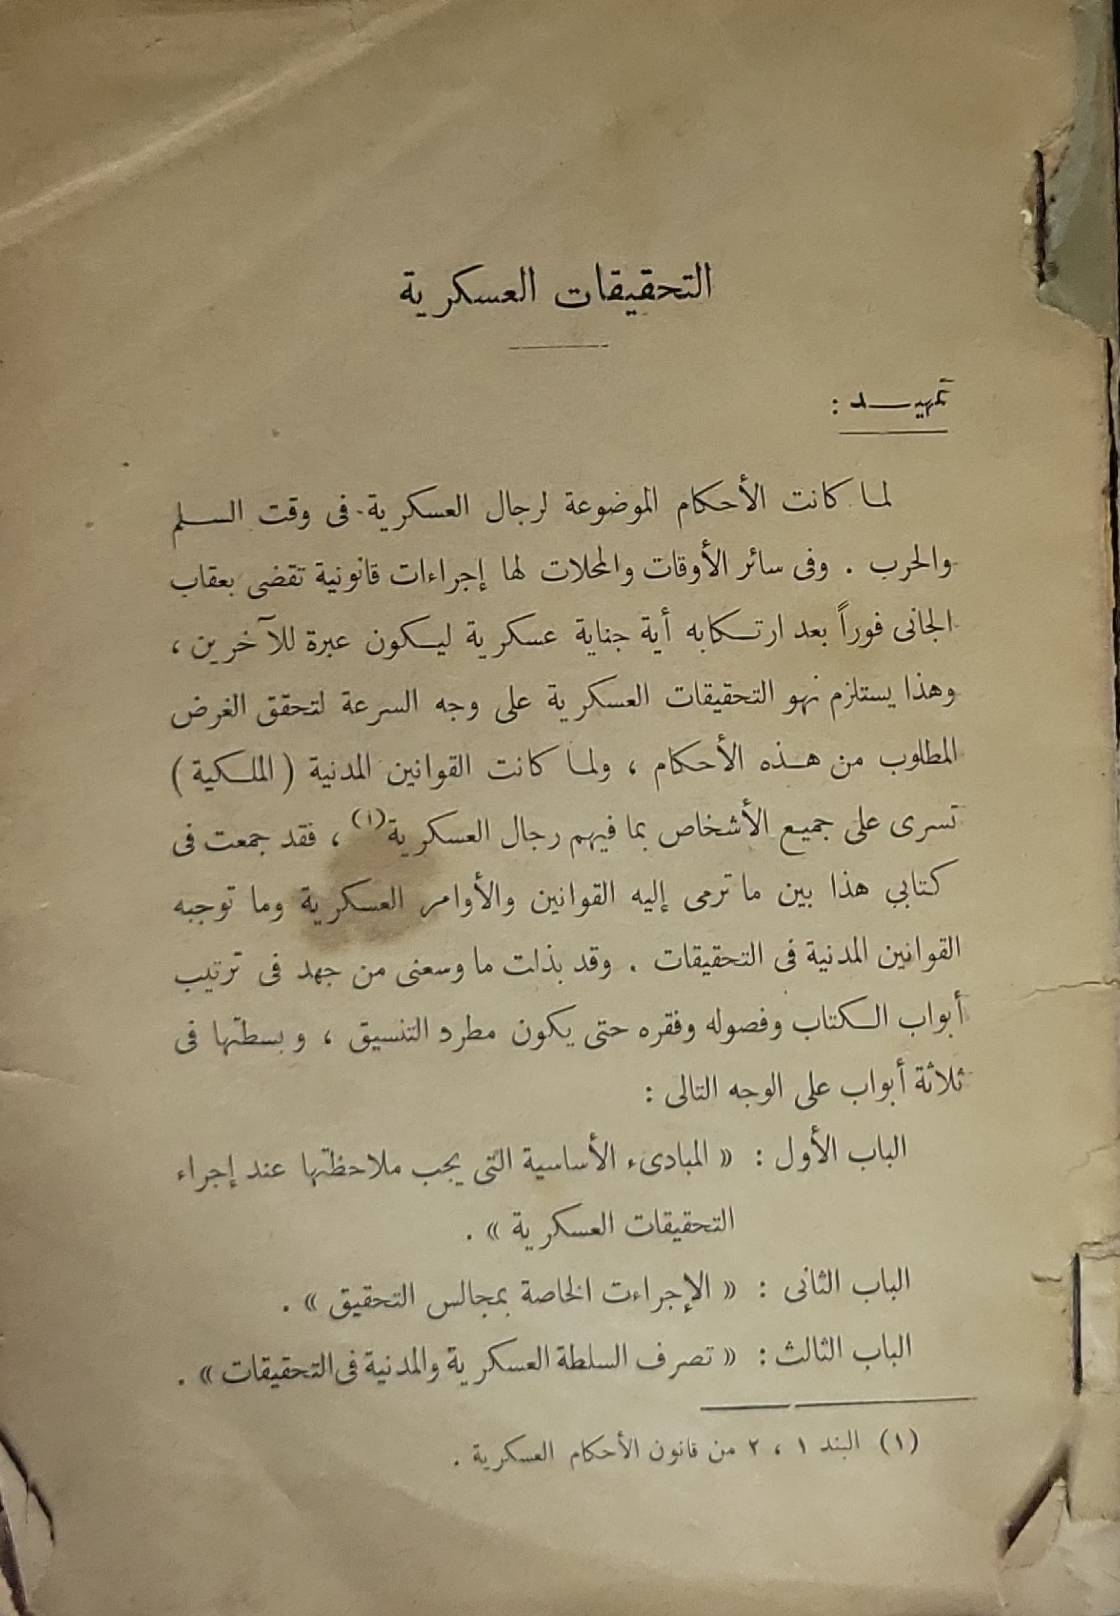 التحقيقات العسكرية
تمهيـــد :
لمـا كانت الأحكام الموضوعة لرجال العسكرية فى وقت الســلم
والحرب . وفى سائر الأوقات والمحلات لها إجراءات قانونية تقضى بعقاب
الجانى فوراً بعد ارتـكابه أية جناية عسكرية ليـكون عبرة للآخرين ،
وهذا يستلزم نهو التحقيقات العسكرية على وجه السرعة لتحقق الغرض
المطلوب من هـذه الأحكام ، ولمـا كانت القوانين المدنية ( الملـكية )
تسرى على جميع الأشخاص بما فيهم رجال العسكرية (١) ، فقد جمعت فى
كتابي هذا بين ما ترمى إليه القوانين والأوامر العسكرية وما توجبه
القوانين المدنية فى التحقيقات . وقد بذلت ما وسعنى من جهد فى ترتيب
أبواب الـكتاب وفصوله وفقره حتى يكون مطرد التنسيق ، وبسطتها فى
ثلاثة أبواب على الوجه التالى :
الباب الأول : « المبادىء الأساسية التى يجب ملاحظتها عند إجراء
التحقيقات العسكرية » .
الباب الثانى : « الإجراءت الخاصة بمجالس التحقيق » .
الباب الثالث : « تصرف السلطة العسكرية والمدنية فى التحقيقات » .
(١) البند ١ ، ٢ من قانون الأحكام العسكرية .